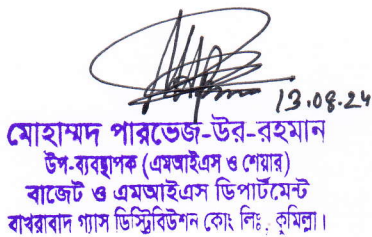 13.08.24
মোহাম্মদ পারভেজ-উর-রহমান
উপ-ব্যবস্থাপক (এমআইএস ও শেয়ার)
বাজেট ও এমআইএস ডিপার্টমেন্ট
বাখরাবাদ গ্যাস ডিস্ট্রিবিউশন কোং লিঃ, কুমিল্লা।